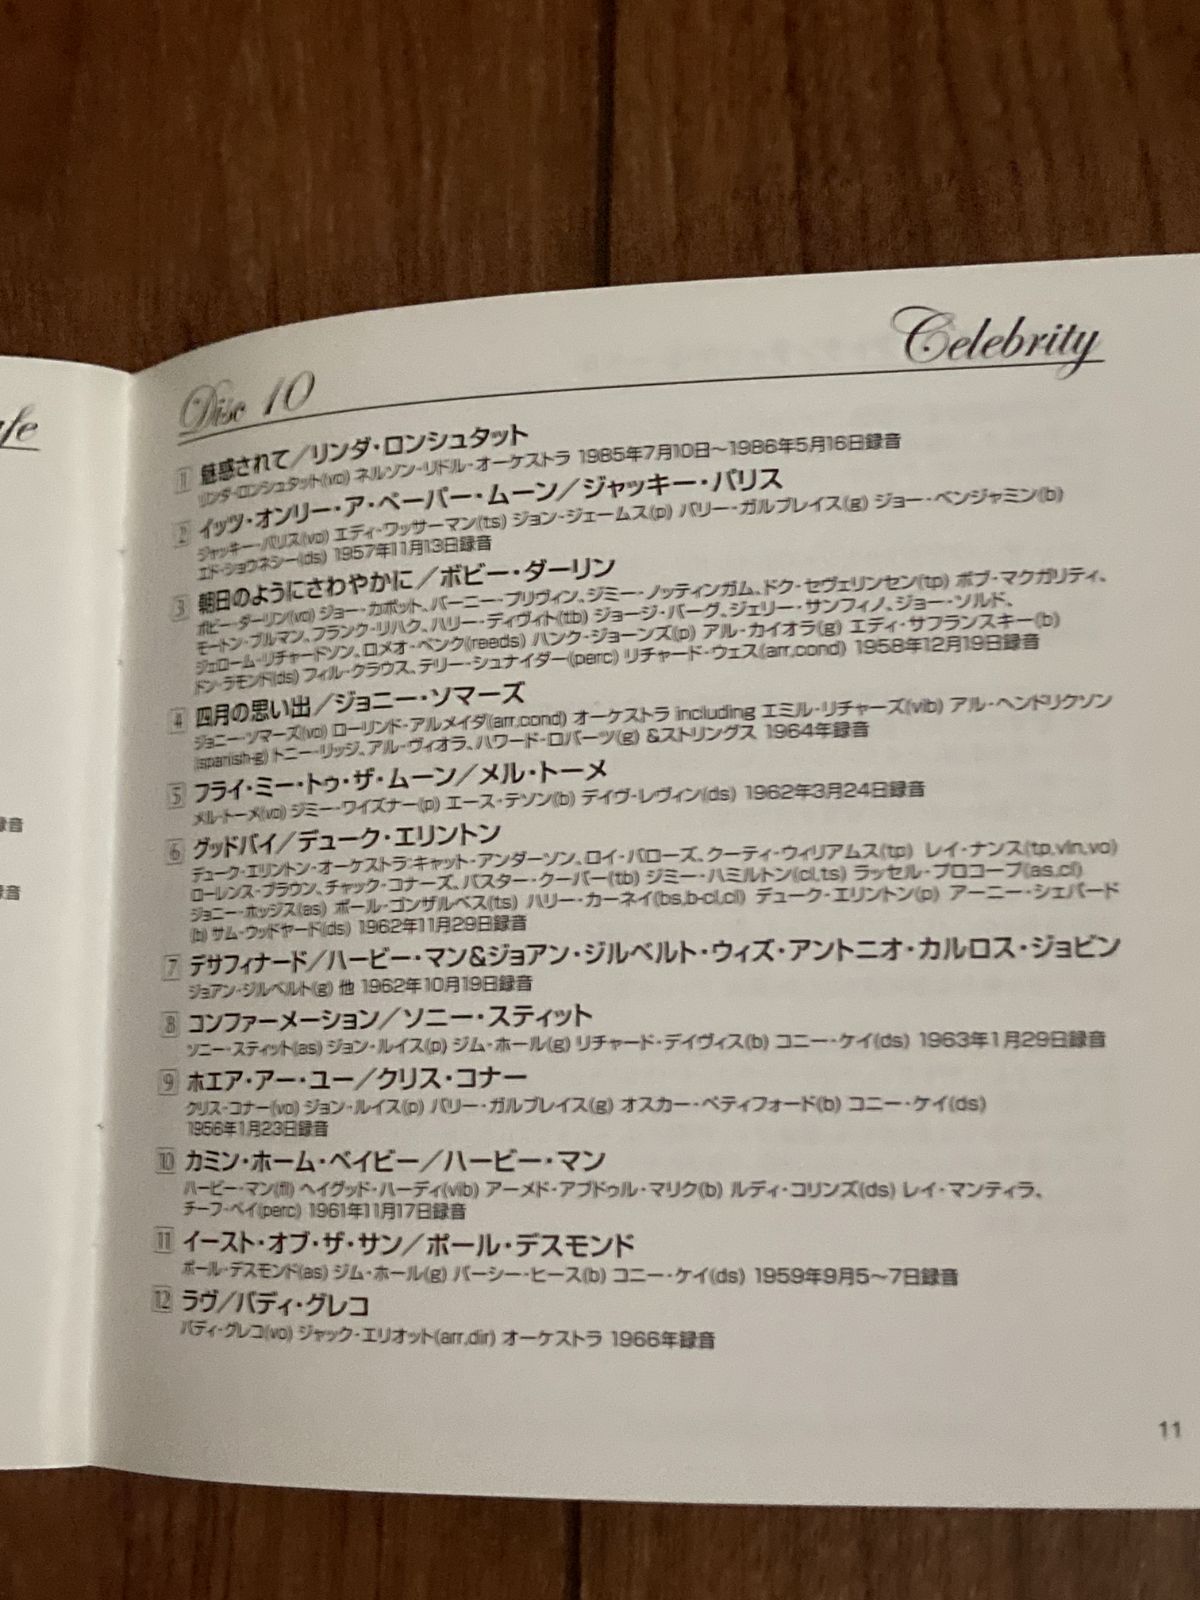 fe
録音
録音
Disc 10
Celebrity
1 魅惑されて／リンダ・ロンシュタット
リンダ・ロンシュタット(vo) ネルソン・リドル・オーケストラ 1985年7月10日〜1986年5月16日録音
2 イッツ・オンリー・ア・ペーパー・ムーン／ジャッキー・パリス
ジャッキー・パリス(vo) エディ・ワッサーマン(ts) ジョン・ジェームス(p) バリー・ガルブレイス(g) ジョー・ベンジャミン(b)
エド・ショウネシー(ds) 1957年11月13日録音
3 朝日のようにさわやかに／ボビー・ダーリン
ボビー・ダーリン(vo) ジョー・カボット、バーニー・プリヴィン、ジミー・ノッティンガム、ドク・セヴェリンセン(tp) ボブ・マクガリティ、
モートン・ブルマン、フランク・リハク、ハリー・ディヴィト(tb) ジョージ・バーグ、ジェリー・サンフィノ、ジョー・ソルド、
ジェローム・リチャードソン、ロメオ・ペンク(reeds) ハンク・ジョーンズ(p) アル・カイオラ(g) エディ・サフランスキー(b)
ドン・ラモンド(ds) フィル・クラウス、テリー・シュナイダー(perc) リチャード・ウェス(arr,cond) 1958年12月19日録音
4 四月の思い出／ジョニー・ソマーズ
ジョニー・ソマーズ(vo) ローリンド・アルメイダ(arr,cond) オーケストラ including エミル・リチャーズ(vib) アル・ヘンドリクソン
(spanish-g) トニー・リッジ、アル・ヴィオラ、ハワード・ロバーツ(g) &ストリングス 1964年録音
5 フライ・ミー・トゥ・ザ・ムーン／メル・トーメ
メル・トーメ(vo) ジミー・ワイズナー(p) エース・テソン(b) デイヴ・レヴィン(ds) 1962年3月24日録音
6 グッドバイ／デューク・エリントン
デューク・エリントン・オーケストラ:キャット・アンダーソン、ロイ・バローズ、クーティ・ウィリアムス(tp) レイ・ナンス(tp,vln,vo)
ローレンス・ブラウン、チャック・コナーズ、バスター・クーパー(tb) ジミー・ハミルトン(cl,ts) ラッセル・プロコープ(as,cl)
ジョニー・ホッジス(as) ポール・ゴンザルベス(ts) ハリー・カーネイ(bs,b-cl,cl) デューク・エリントン(p) アーニー・シェパード
(b) サム・ウッドヤード(ds) 1962年11月29日録音
7 デサフィナード／ハービー・マン&ジョアン・ジルベルト・ウィズ・アントニオ・カルロス・ジョビン
ジョアン・ジルベルト(g) 他 1962年10月19日録音
8 コンファーメーション／ソニー・スティット
ソニー・スティット(as) ジョン・ルイス(p) ジム・ホール(g) リチャード・デイヴィス(b) コニー・ケイ(ds) 1963年1月29日録音
9 ホエア・アー・ユー／クリス・コナー
クリス・コナー(vo) ジョン・ルイス(p) バリー・ガルブレイス(g) オスカー・ペティフォード(b) コニー・ケイ(ds)
1956年1月23日録音
10 カミン・ホーム・ベイビー／ハービー・マン
ハービー・マン(fl) ヘイグッド・ハーディ(vib) アーメド・アブドゥル・マリク(b) ルディ・コリンズ(ds) レイ・マンティラ、
チーフ・ベイ(perc) 1961年11月17日録音
11 イースト・オブ・ザ・サン／ポール・デスモンド
ポール・デスモンド(as) ジム・ホール(g) パーシー・ヒース(b) コニー・ケイ(ds) 1959年9月5〜7日録音
12 ラヴ／バディ・グレコ
バディ・グレコ(vo) ジャック・エリオット(arr,dir) オーケストラ 1966年録音
11